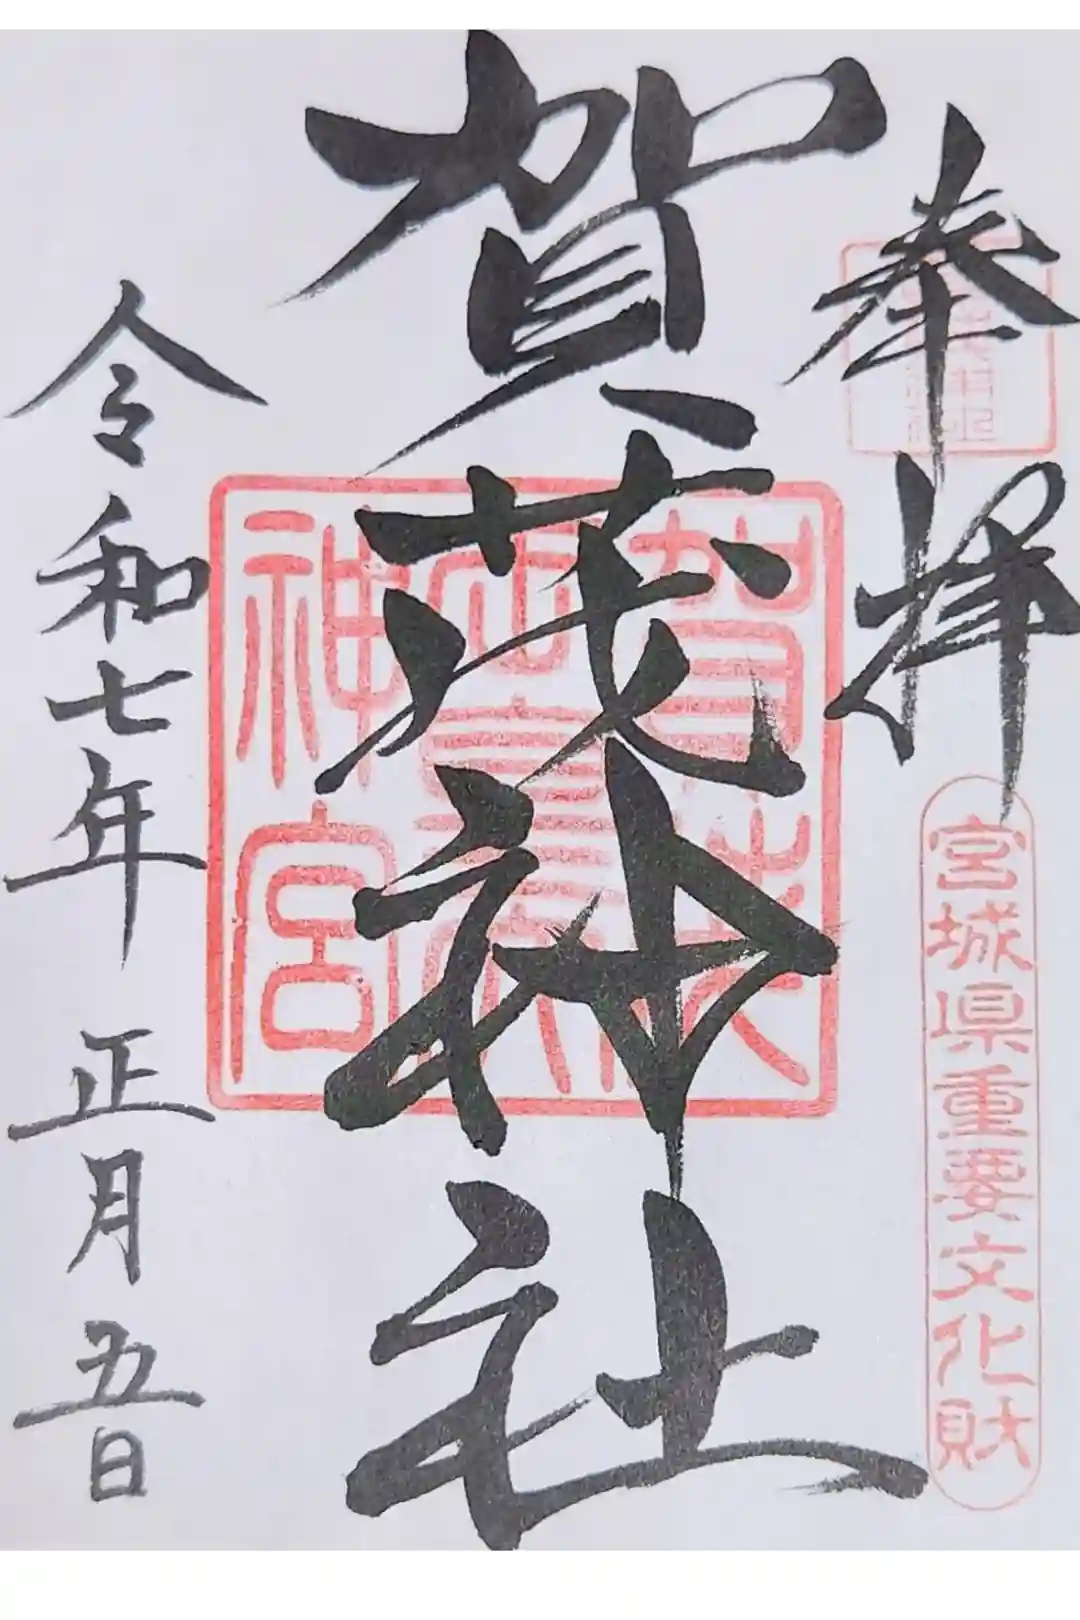 奉拝
宮城県重要文化財
賀茂神社
令和七年 正月 五日